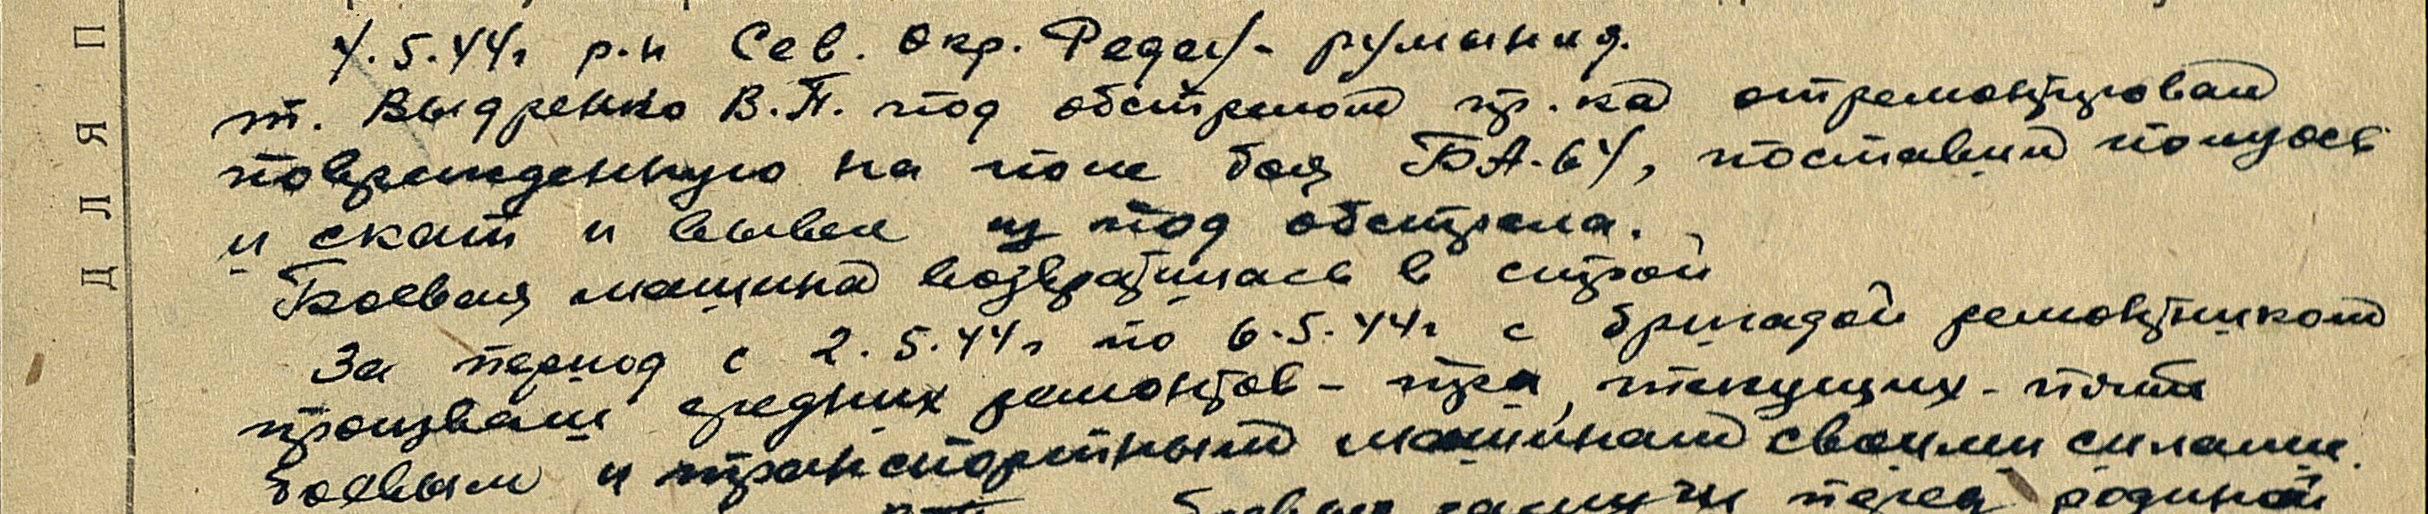 4.5.44г р-н Сев. окр. Редеу- румыния.
т. Выдренко В.П. под обстрелом пр-ка отремонтировал
поврежденную на поле боя БА-64, поставил полуось
и скат и вывел из под обстрела.
Боевая машина возвратилась в строй
За период с 2.5.44г по 6.5.44г с бригадой ремонтников
произвели средних ремонтов - три, текущих - пяти
боевым и транспортным машинам своими силами.
перед родиной
ДЛЯ П